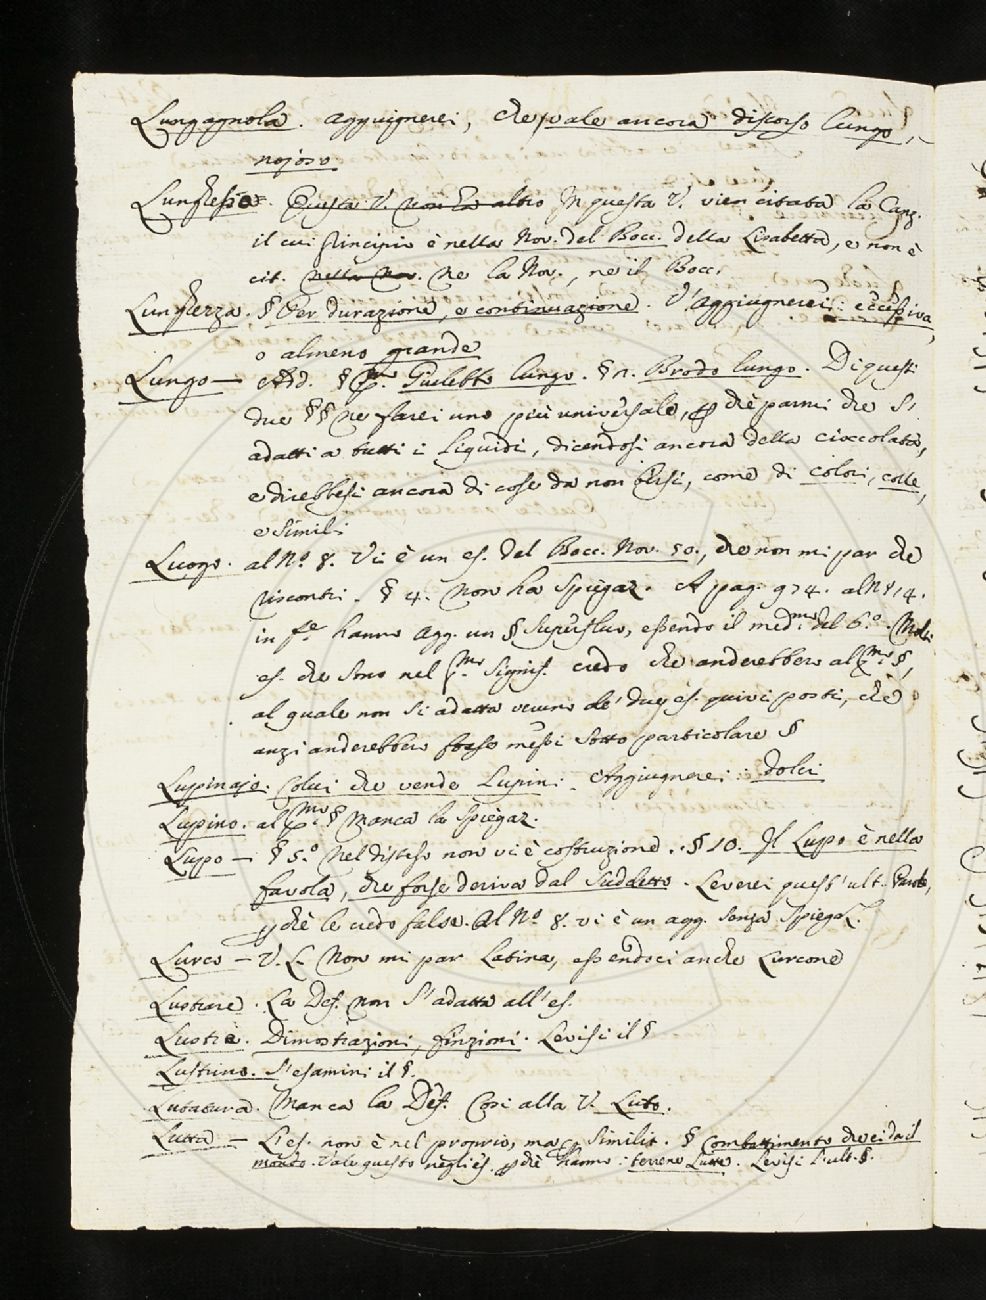 Lungagnola. aggiugnerei, che vale ancora discorso lungo,
nojoso
Lunghesso. Questa V. non ha altro In questa V. vien citata la Canz.
il cui principio è nella Nov. del Bocc. della Lisabetta, e non è
cit. nella Nov. ne la Nov., ne il Bocc.
Lunghezza. § Per durazione, e continuazione. V'aggiugnerei: eccessiva,
o almeno grande
Lungo — Add. § Giulebbo lungo. § n. Brodo lungo. Di questi
due §§ ne farei uno più universale, perchè parmi che s'
adatti a tutti i Liquidi, dicendosi ancora della cioccolata,
e direbbesi ancora di cose da non bersi, come di colori, colle,
e simili
Luogo. al N.o 8. Vi è un es. del Bocc. Nov. 50., che non mi par che
riscontri. § 4. Non ha spiegaz. A pag. 974. al N.o 14.
in fe hanno agg. un § superfluo, essendo il medmo del 6.o Molti
es. che sono nel pmo signif. credo che anderebbero al pmo §,
al quale non si adatta veruno de' due es. quivi posti, che
anzi anderebbero forse messi sotto particolare §
Lupinajo. Colui che vende Lupini. Aggiugnerei: dolci
Lupino. al pmo § manca la spiegaz.
Lupo — § 5.o Nel disteso non vi è costruzione. § 10. Il Lupo è nella
favola, che forse deriva dal suddetto. Leverei quest'ult. Parole,
perchè le credo false. Al N.o 8. vi è un agg. senza spiegaz.
Lurco — V. L. Non mi par Latina, essendoci anche Lurcone
Lustrare. La Def. non s'adatta all'es.
Lustre. Dimostrazioni, finzioni. Levisi il §
Lustrino. S'esamini il §.
Lutatura. Manca la Def. Così alla V. Luto.
Lutta — L'es. non è nel proprio, ma per similit. § Combattimento che ci dà il
mondo. Vale questo negli es. perchè hanno: terreno Lutte. Levisi l'ult. §.